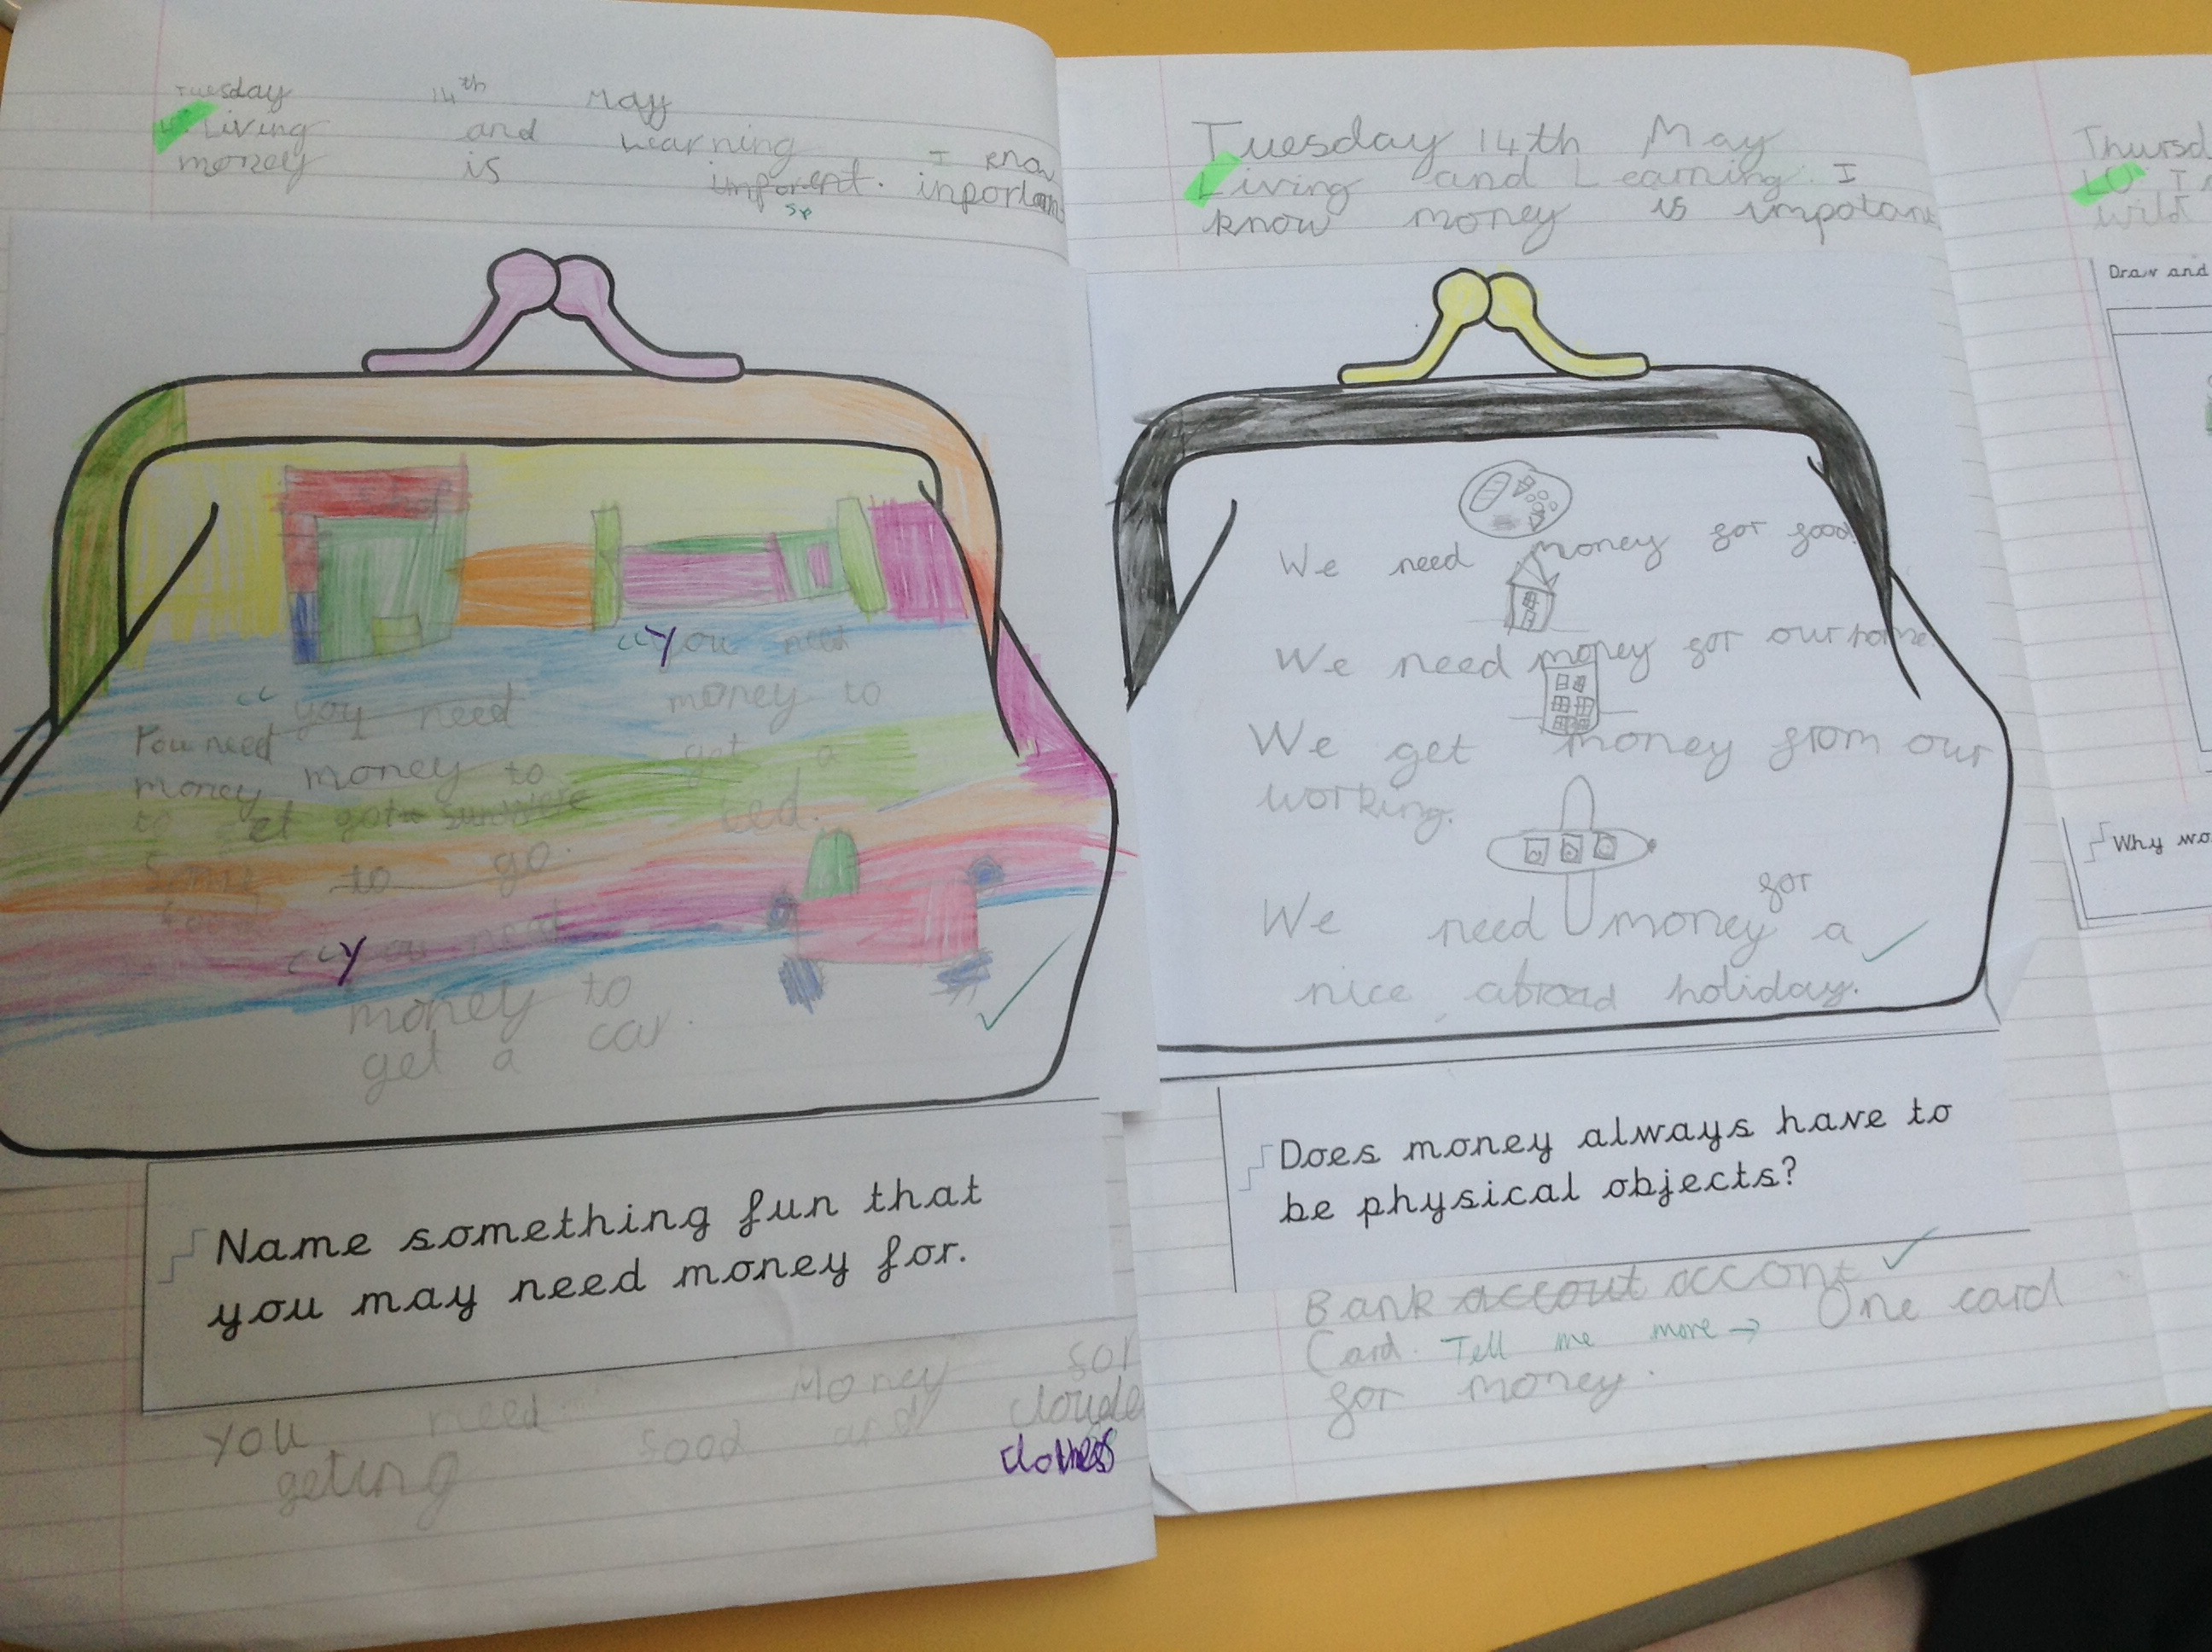 Tuesday 14th May
Living and Learning I know
money is imporent. inportan
sp
"You need
money to
get a
bed.
"you need
money to
go.
You need
money
to get
"You need
money to
get a car.
Name something fun that
you may need money for.
You need Money for
geting food and cloude
clothes
Tuesday 14th May
Living and Learning. I
know money is impotant
We need money for food.
We need money for our home.
We get money from our
working.
We need money for a
nice abroad holiday.
Does money always have to
be physical objects?
Bank accout account
Card. Tell me more → One card
for money.
Thursd
LO I
wild
Draw and
Why wo